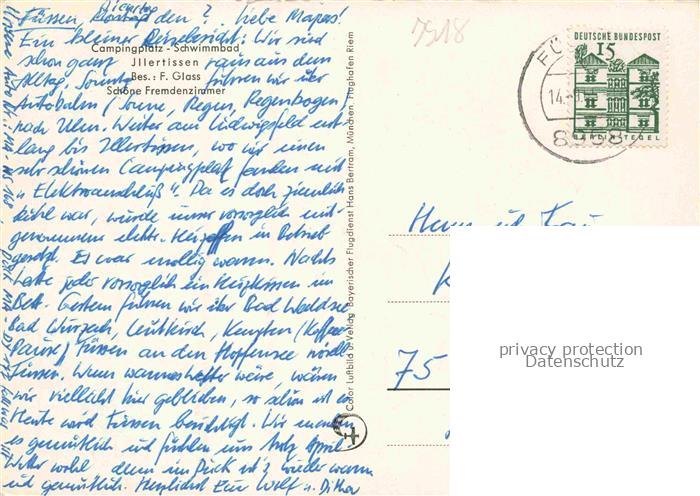 Füssen, Dienstag den ? Liebe Mapas!
Ein kleiner Reisebericht: Wir sind
schon ganz raus aus dem
Alltag. Sonntag fuhren wir über
Autobahn (Sonne, Regen, Regenbogen)
nach Ulm. Weiter am Ludwigsfeld ent-
lang bis Illertissen, wo wir einen
sehr schönen Campingplatz fanden mit
"Elektroanschluß". Da es doch ziemlich
kühl war, wurde unser vorsorglich mit-
genommene elektr. Heizofen in Betrieb
gesetzt. Es war mollig warm. Nachts
hatte jeder vorsorglich ein Heizkissen im
Bett. Gestern fuhren wir über Bad Waldsee,
Bad Wurzach, Leutkirch, Kempten (Kaffee-
Pause) Füssen an den Hopfensee nördl.
Füssen. Wenn warmes Wetter wäre, wären
wir vielleicht hier geblieben, so schön ist es
Heute wird Füssen besichtigt. Wir
es gemütlich und fühlen uns trotz April-
Wetter wohl, denn im ist's wieder warm
und gemütlich. Herzlichst Eure Wolf u.
Campingplatz - Schwimmbad
Jllertissen
Bes.: F. Glass
Schöne Fremdenzimmer
Color Luftbild & Verlag Bayerischer Flugdienst Hans Bertram, München Flughafen Riem
7918
DEUTSCHE BUNDESPOST
15
BERLIN-TEGEL
FÜS
14.
8958
Herrn und Frau
K
75
privacy protection
Datenschutz